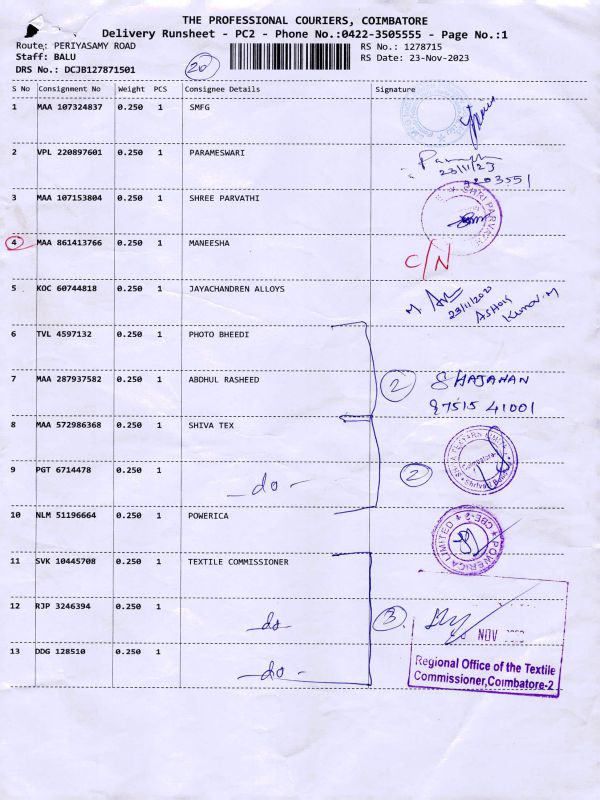 THE PROFESSIONAL COURIERS, COIMBATORE
Delivery Runsheet - PC2 - Phone No.:0422-3505555 - Page No.:1
Route: PERIYASAMY ROAD RS No.: 1278715
Staff: BALU 20 RS Date: 23-Nov-2023
DRS No.: DCJB127871501
S No Consignment No Weight PCS Consignee Details Signature
1 MAA 107324837 0.250 1 SMFG
2 VPL 220897601 0.250 1 PARAMESWARI
23/11/23
9203551
3 MAA 107153804 0.250 1 SHREE PARVATHI
SHRI PARVATHI
4 MAA 861413766 0.250 1 MANEESHA
C/N
5 KOC 60744818 0.250 1 JAYACHANDREN ALLOYS
M
23/11/2020
ASHOK
KUMAR.M
6 TVL 4597132 0.250 1 PHOTO BHEEDI
7 MAA 287937582 0.250 1 ABDHUL RASHEED 2 SHAJAHAN
87515 41001
8 MAA 572986368 0.250 1 SHIVA TEX
SHIVA TEXYARN LIMITED
Coimbatore
9 PGT 6714478 0.250 1 2
- do -
10 NLM 51196664 0.250 1 POWERICA
POWERICA LIMITED CBE-2
11 SVK 10445708 0.250 1 TEXTILE COMMISSIONER
12 RJP 3246394 0.250 1 do 3
NOV
13 DDG 128510 0.250 1 - do -
Regional Office of the Textile
Commissioner,Coimbatore-2